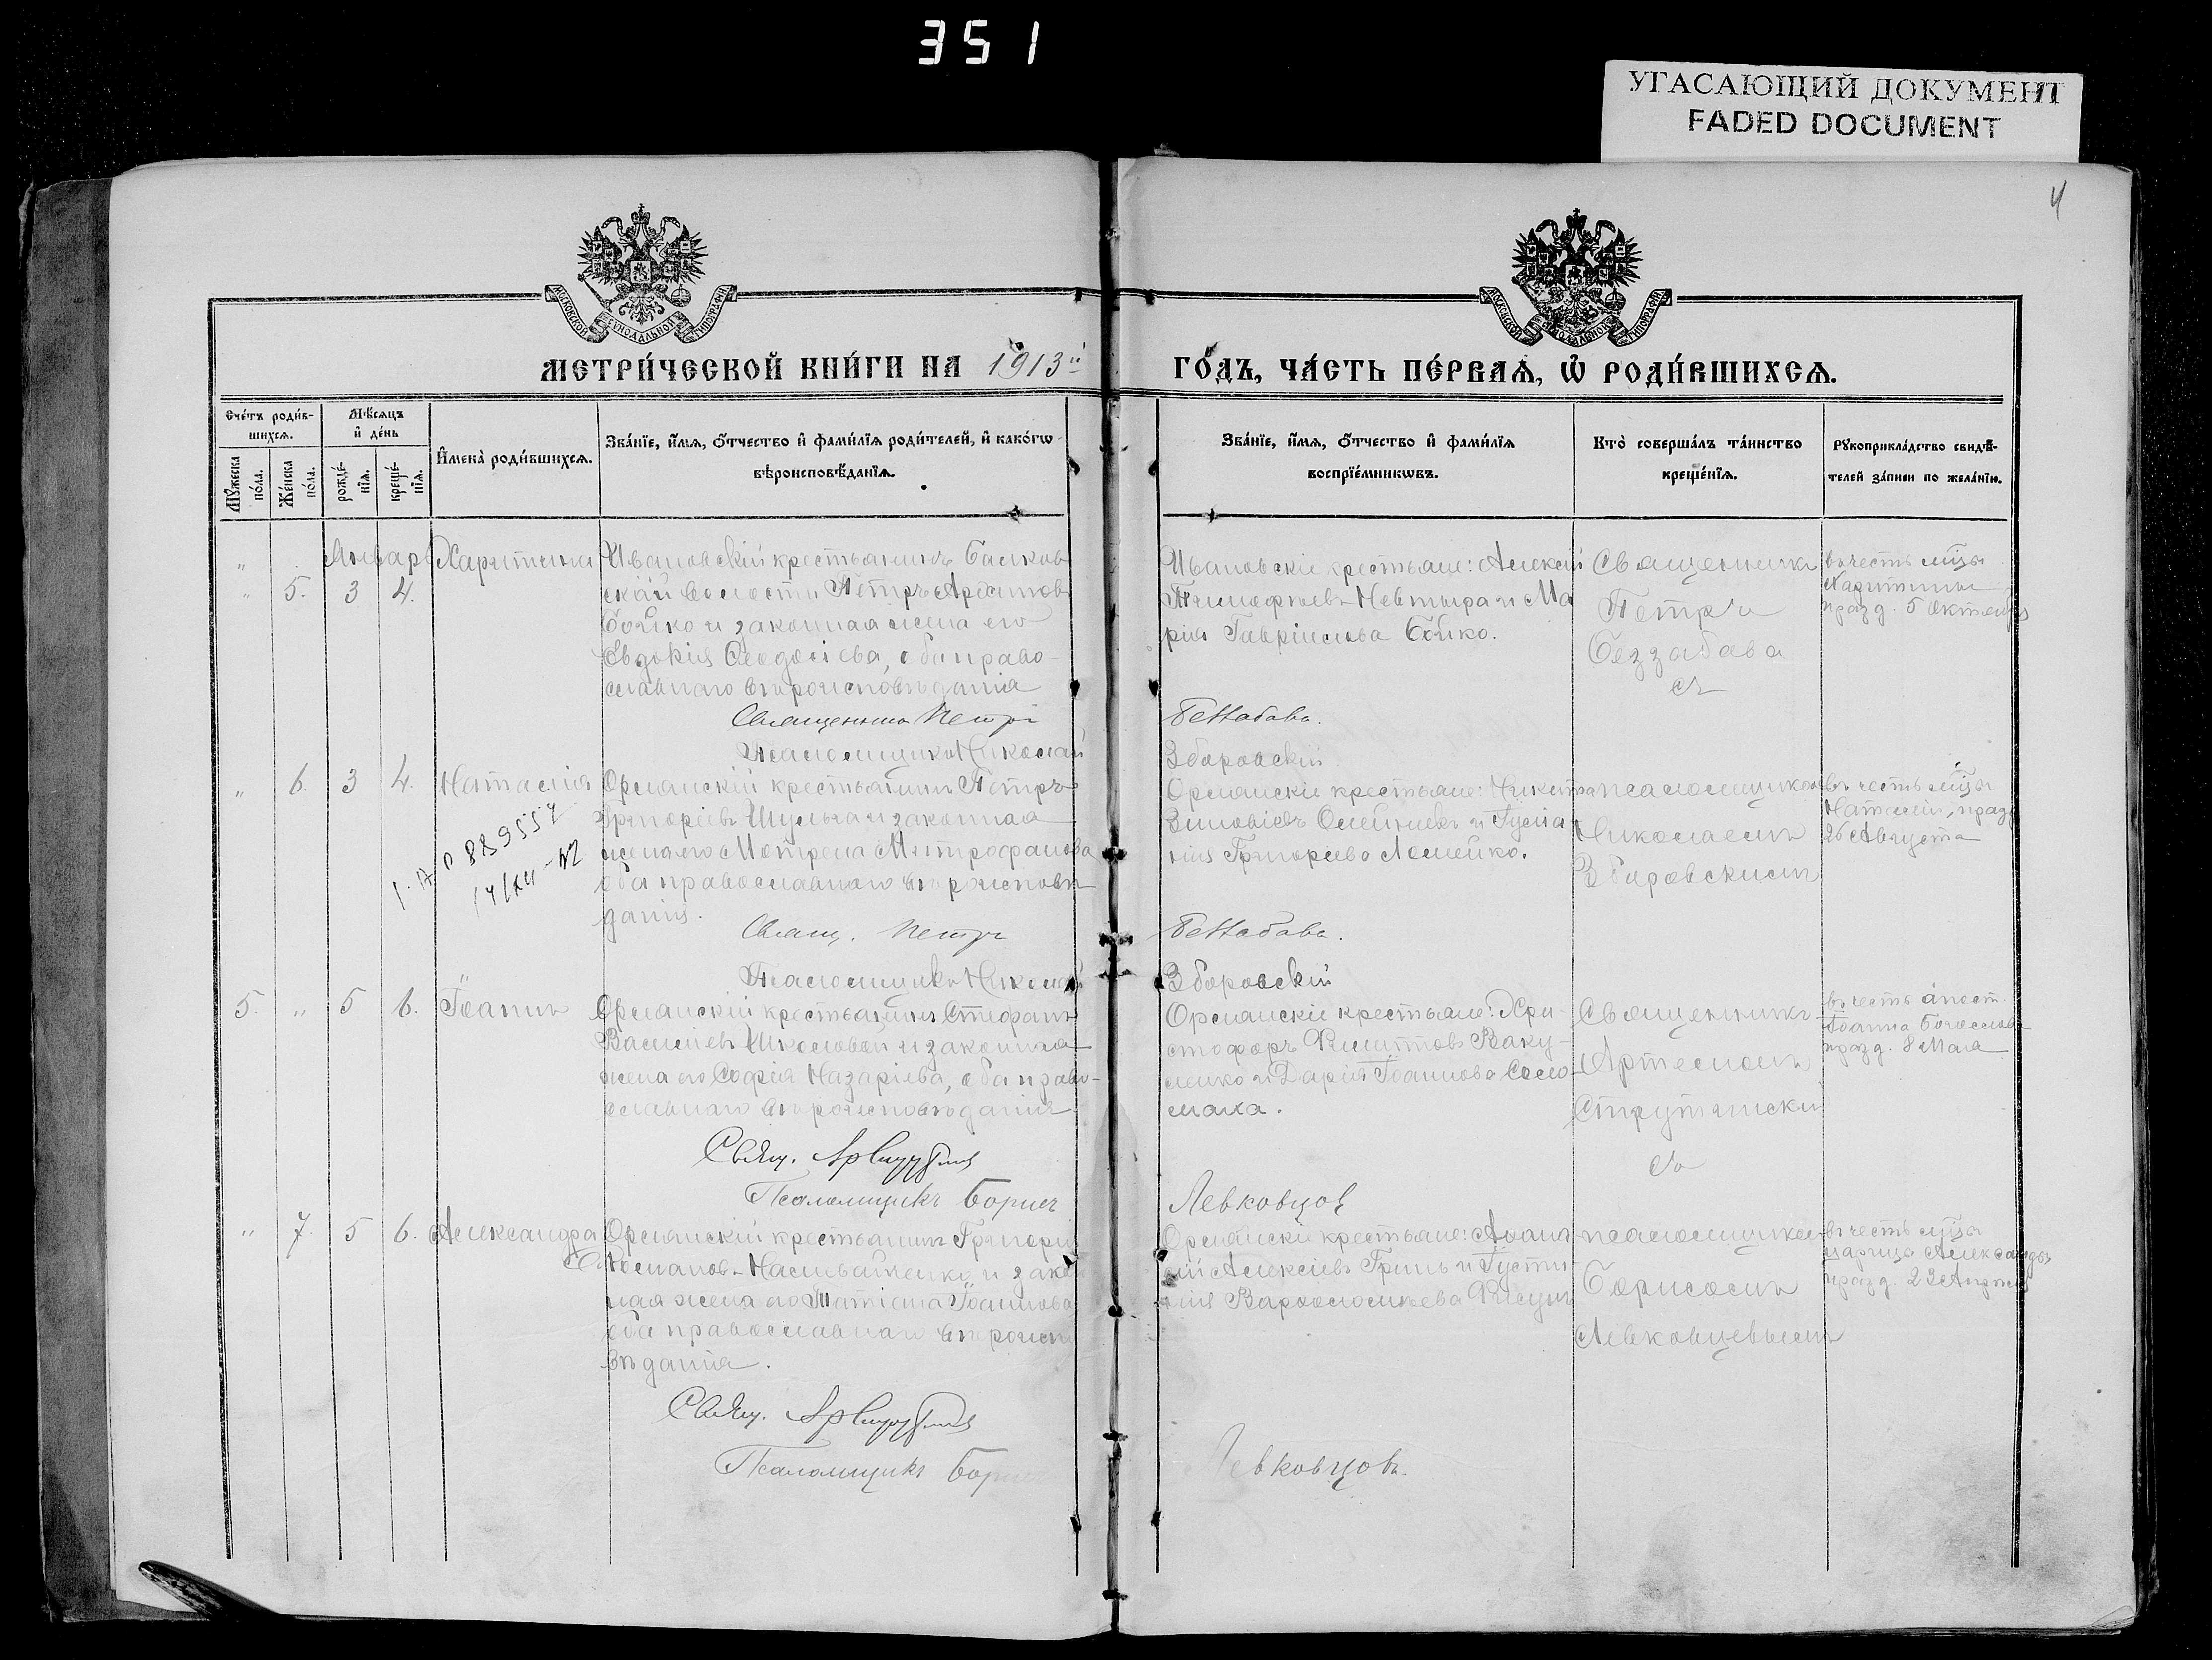 351
УГАСАЮЩИЙ ДОКУМЕНТ
FADED DOCUMENT
4
МОСКОВСКОЙ СѴНОДАЛЬНОЙ ТИПОГРАФІИ
МОСКОВСКОЙ СѴНОДАЛЬНОЙ ТИПОГРАФІИ
МЕТРИ́ЧЕСКОЙ КНИ́ГИ НА 1913й
ГО́ДЪ, ЧА́СТЬ ПЕ́РВАѦ, Ѽ РОДИ́ВШИХСѦ.
Сче́тъ роди́в-
шихсѧ.
Мѣ́сѧцъ
и҆ де́нь
Мꙋ́жеска
по́ла.
Же́нска
по́ла.
рожде́-
нїѧ.
креще́-
нїѧ.
И҆мена̀ роди́вшихсѧ.
Зва́нїе, и҆́мѧ, ѻ҆́тчество и҆ фами́лїѧ роди́телей, и҆ како́гѡ
вѣроисповѣ́данїѧ.
Зва́нїе, и҆́мѧ, ѻ҆́тчество и҆ фами́лїѧ
воспрїе́мникѡвъ.
Кто̀ соверша́лъ та́инство
креще́нїѧ.
Рꙋкоприкла́дство свидѣ́-
телей за́писи по жела́нїю.
Январь
" 5. 3 4. Харитина
Ивановскій крестьянинъ Балков
ской волости Петръ Архипов
Бойко и законная жена его
Евдокія Ѳеодосіева, оба право-
славнаго вѣроисповѣданія
Священникъ Петръ
Псаломщикъ Николай
Ивановскіе крестьяне: Алексей
Тимофѣевъ Невтыра и Ма
рія Гавріилова Бойко.
Беззабава.
Зборовскій
Священникъ
Петръ
Беззабава
въ честь мцы
Харитины
празд. 5 Октября
" 6. 3 4. Наталія
889557
14/XII-42
Орлянскій крестьянинъ Петръ
Григоріевъ Шульга и законная
жена его Мотрона Митрофанова
оба православнаго вѣроисповѣ
данія.
Свящ. Петръ
Псаломщикъ Николай
Орлянскіе крестьяне: Никита
Зиновіевъ Олейникъ и Іуліа
нія Григорьева Ломейко.
Беззабава.
Зборовскій
псаломщикомъ
Николаемъ
Зборовскимъ
въ честь мцы
Наталіи, празд
26 Августа
5. " 5 6. Іоаннъ
Орлянскій крестьянинъ Стефанъ
Василіевъ Школовой и законная
жена его Софія Назаріева, оба право-
славнаго вѣроисповѣданія
Свящ.
Псаломщикъ Борисъ
Орлянскіе крестьяне: Хри-
стофоръ Филипповъ Ваку-
ленко и Дарія Іоаннова Соло-
маха.
Левковцов
Священникъ
Артемонъ
въ честь апост.
Іоанна Богослова
празд. 8 Мая
" 7. 5 6. Александра
Орлянскій крестьянинъ Григорій
и закон
ная жена его Татіана Іоаннова
оба православнаго вѣроиспо
вѣданія.
Свящ.
Псаломщикъ Борис
Орлянскіе крестьяне: Аѳана
сій Алексіевъ Гринь и Іусти
нія Варѳоломѣева
Левковцовъ.
псаломщикомъ
Борисомъ
Левковцевымъ
въ честь мцы
царицы Александры
празд. 23 Апрѣля